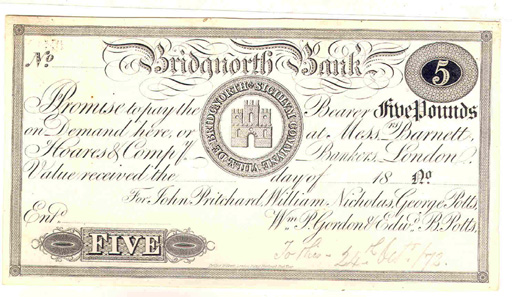 Bridgnorth Bank
No
5
I Promise to pay the Bearer Five Pounds
on Demand here, or at Messrs Barnett,
Hoares & Compy. Bankers, London.
Value received the day of 18 No
For John Pritchard, William, Nicholas, George Potts,
Wm. P. Gordon & Edwd. B. Potts.
Entd.
FIVE
24th Octr /72.